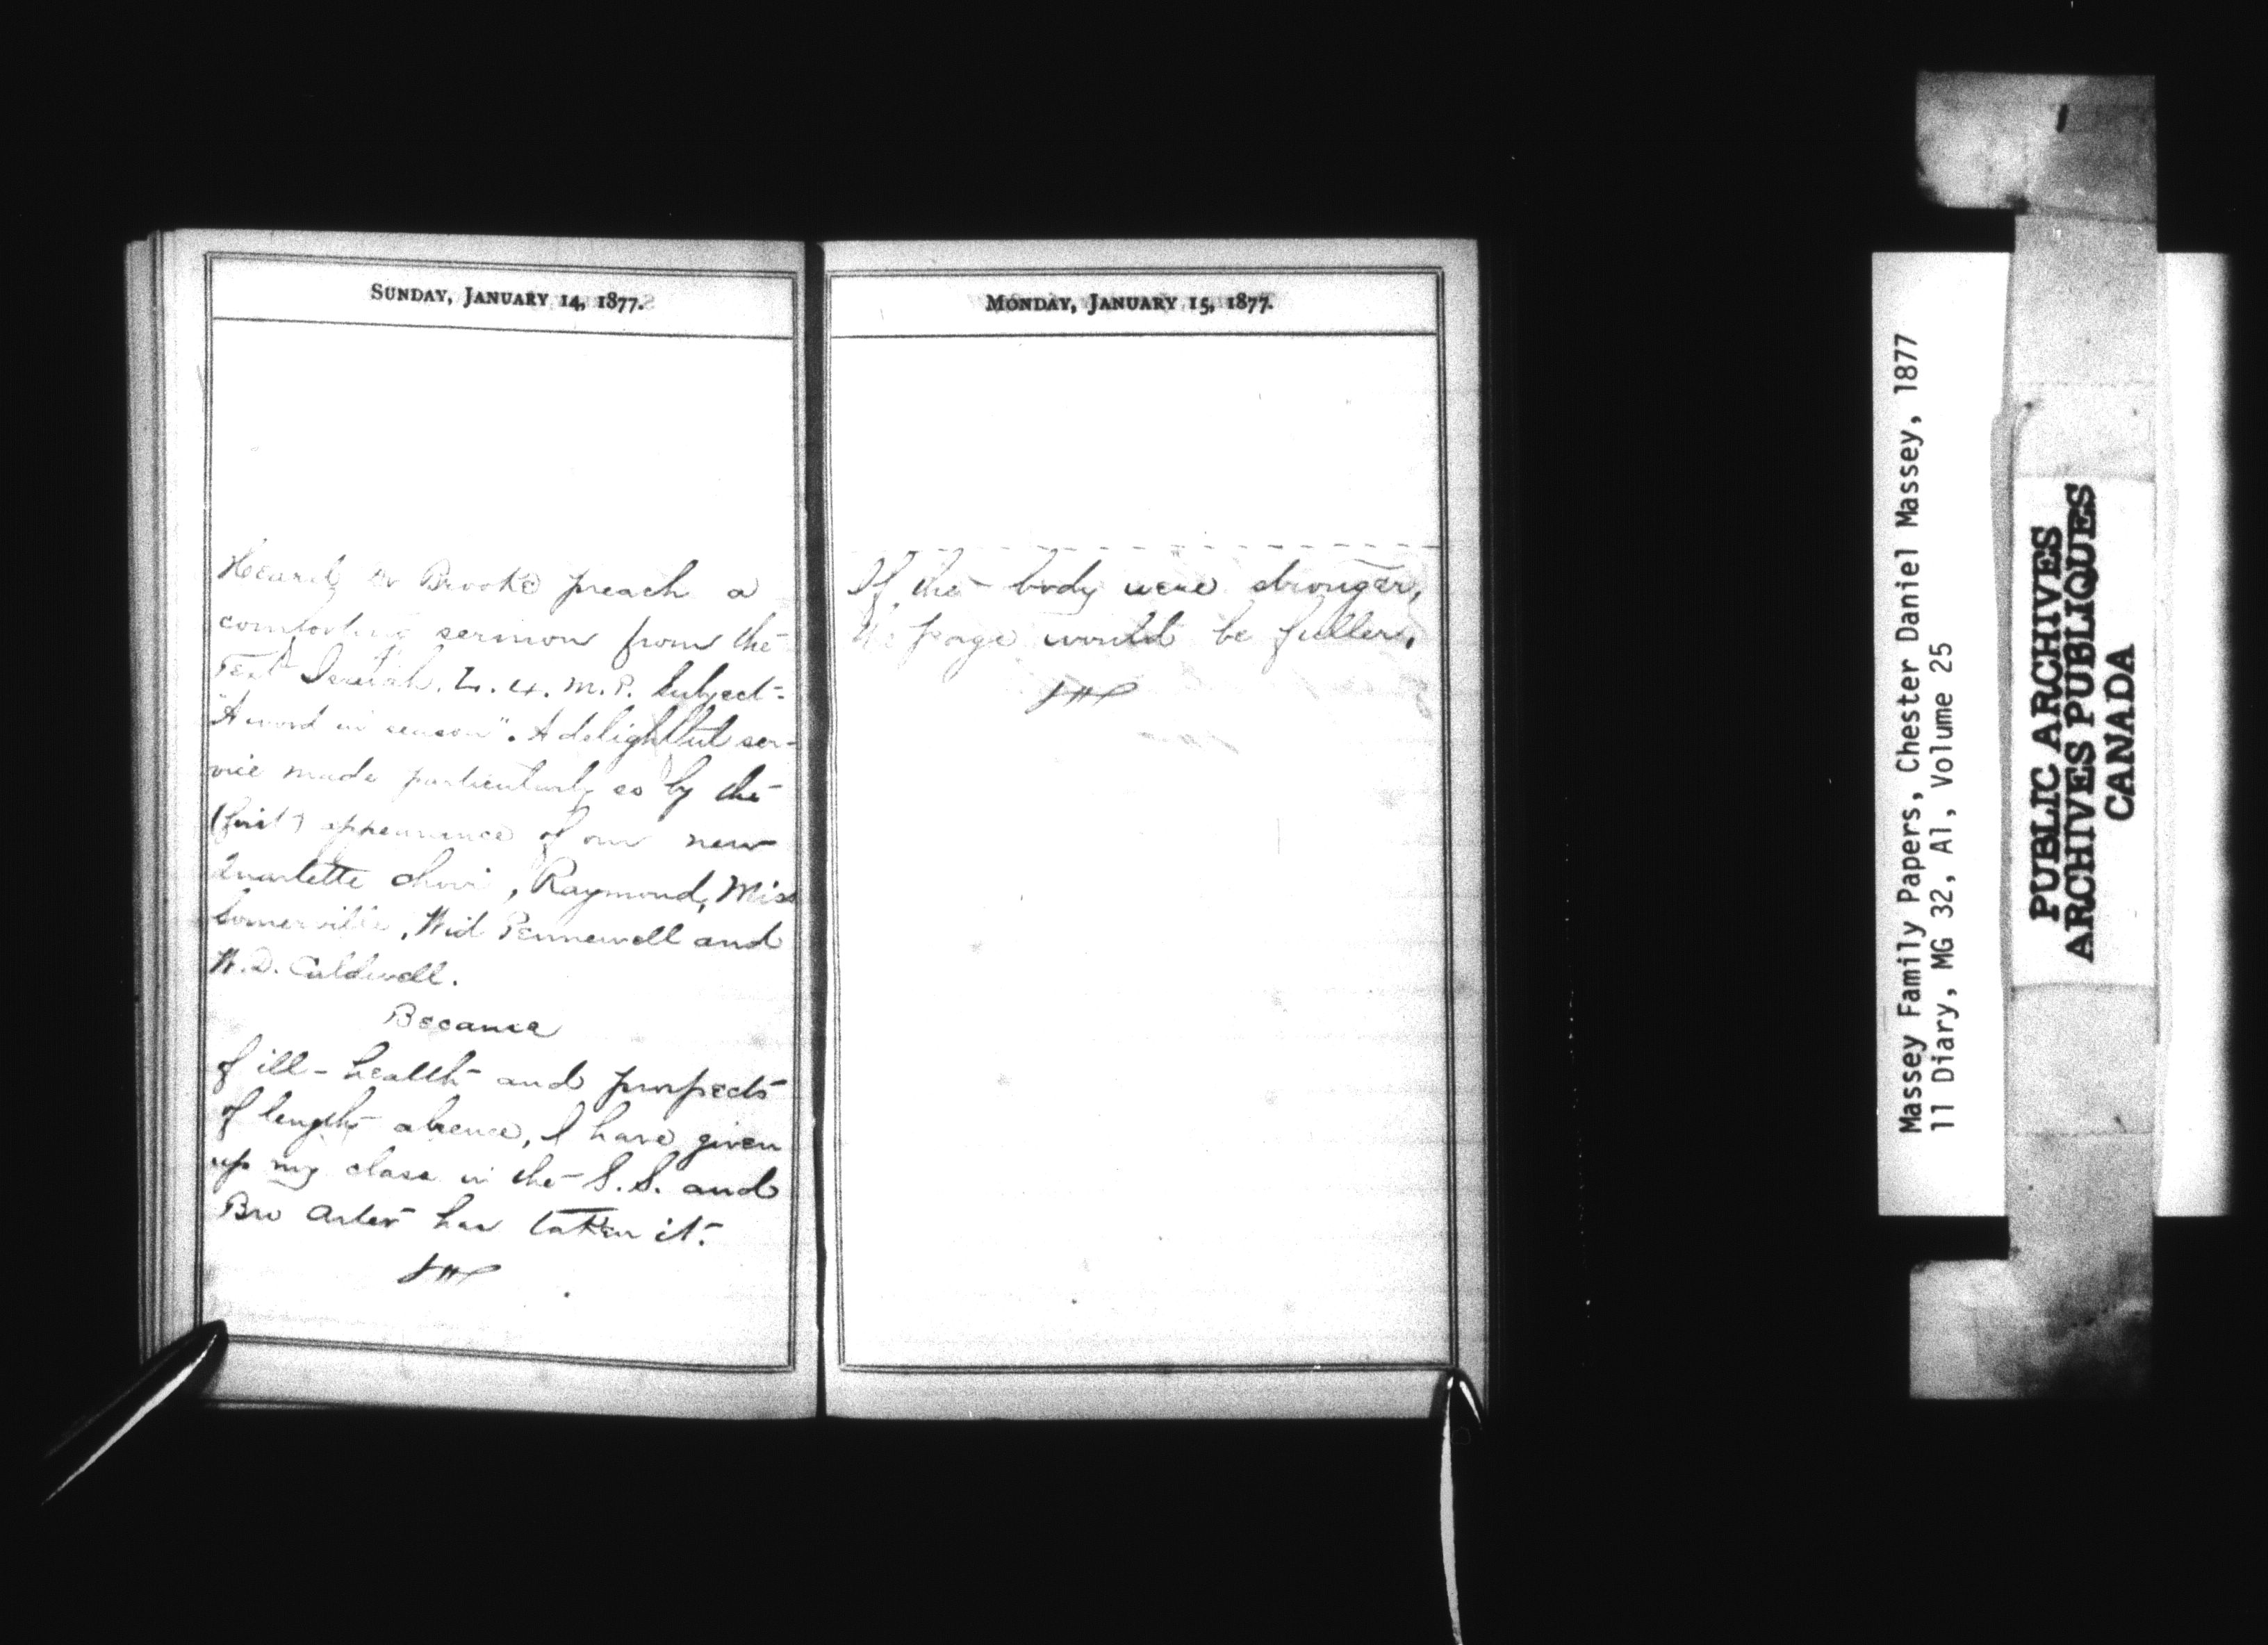 SUNDAY, JANUARY 14, 1877.
Heard Dr Brooke preach a
comforting sermon from the
Text Isaiah. L. 4. M.P. Subject-
"A word in season". A delightful ser-
vice made particularly so by the
(first) appearance of our new
Quartette choir, Raymond, Miss
Somerville, Wid Pennewell and
W.D. Caldwell.
Because
of ill-health and prospects
of lengthy absence, I have given
up my class in the S.S. and
Bro Arter has taken it.
MONDAY, JANUARY 15, 1877.
If the body were stronger,
the page would be fuller.
Massey Family Papers, Chester Daniel Massey, 1877
11 Diary, MG 32, A1, Volume 25
PUBLIC ARCHIVES
ARCHIVES PUBLIQUES
CANADA